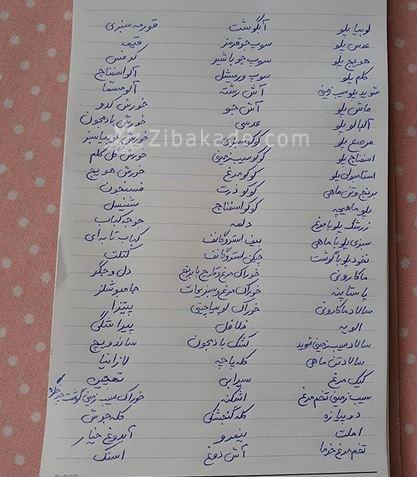 لوبیا پلو آبگوشت قورمه سبزی
عدس پلو سوپ جو قرمز قیمه
هویج پلو سوپ جو با شیر کرفس
کلم پلو سوپ ورمیشل آلو اسفناج
شوید پلو سیب زمینی آش رشته آلو مسما
ماش پلو آش جو خورش کدو
آلبالو پلو عدسی خورش بادمجون
مرصع پلو کوکو سبزی خورش لوبیا سبز
اسفناج پلو کوکو سیب زمینی خورش گل کلم
استامبولی پلو کوکو مرغ خورش هویج
برنج و تن ماهی کوکو ذرت فسنجون
پلو ماهیچه کوکو اسفناج شنیسل
زرشک پلو با مرغ دلمه جوجه کباب
سبزی پلو با ماهی بیف استروگانف کباب تابه ای
نخود پلو با گوشت چیکن استروگانف کتلت
ماکارونی خوراک مرغ و قارچ با برنج دل و جگر
پاستا پنه خوراک مرغ و سبزیجات
سالاد ماکارونی خوراک لوبیا چیتی پیتزا
الویه فلافل پیراشکی
سالاد سیب زمینی کشک بادمجون ساندویچ
سالاد تن ماهی کله پاچه لازانیا
کیک مرغ سیرابی ته‌چین
سیب زمینی تخم مرغ اشکنه خوراک سیب زمینی گوشت
دو پیازه کله گنجشکی کله جوش
املت نیمرو آبدوغ خیار
تخم مرغ خرما آش دوغ اسنک
Zibakade.com